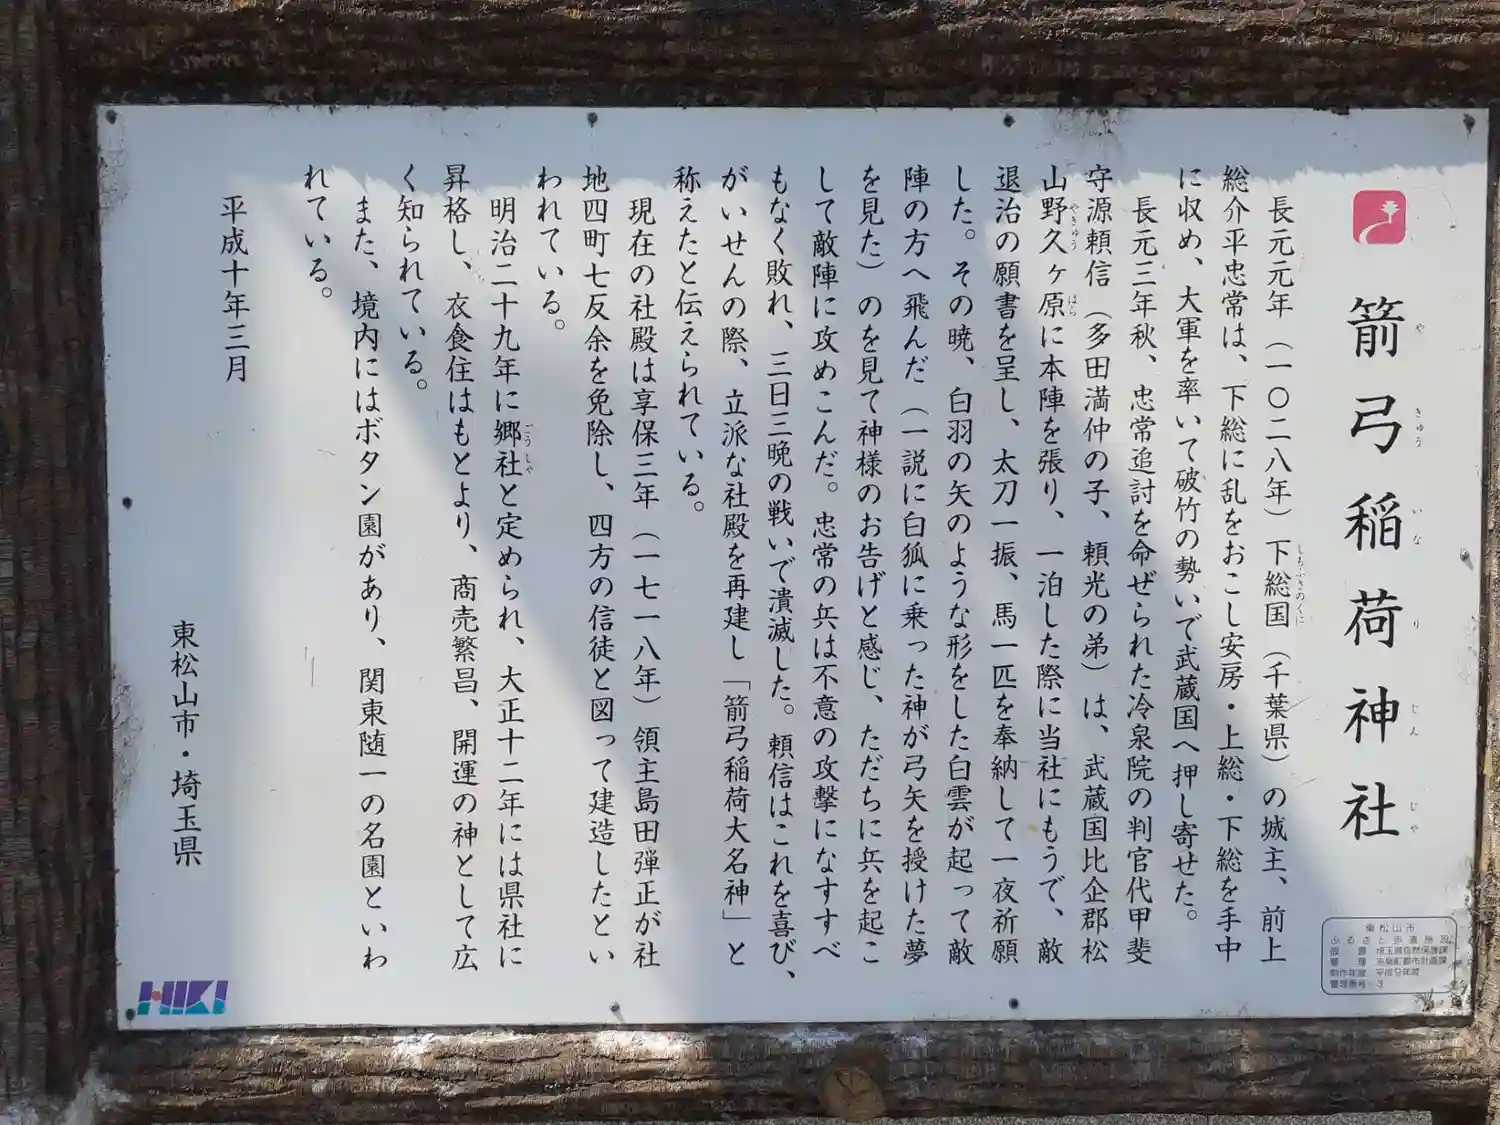 箭弓稲荷神社
や きゅう いな り じん じゃ
長元元年（一〇二八年）下総国（千葉県）の城主、前上
しもふさのくに
総介平忠常は、下総に乱をおこし安房・上総・下総を手中
に収め、大軍を率いて破竹の勢いで武蔵国へ押し寄せた。
長元三年秋、忠常追討を命ぜられた冷泉院の判官代甲斐
守源頼信（多田満仲の子、頼光の弟）は、武蔵国比企郡松
山野久ヶ原に本陣を張り、一泊した際に当社にもうで、敵
やきゅう はら
退治の願書を呈し、太刀一振、馬一匹を奉納して一夜祈願
した。その暁、白羽の矢のような形をした白雲が起って敵
陣の方へ飛んだ（一説に白狐に乗った神が弓矢を授けた夢
を見た）のを見て神様のお告げと感じ、ただちに兵を起こ
して敵陣に攻めこんだ。忠常の兵は不意の攻撃になすすべ
もなく敗れ、三日三晩の戦いで潰滅した。頼信はこれを喜び、
がいせんの際、立派な社殿を再建し「箭弓稲荷大名神」と
称えたと伝えられている。
現在の社殿は享保三年（一七一八年）領主島田弾正が社
地四町七反余を免除し、四方の信徒と図って建造したとい
われている。
明治二十九年に郷社と定められ、大正十二年には県社に
ごうしゃ
昇格し、衣食住はもとより、商売繁昌、開運の神として広
く知られている。
また、境内にはボタン園があり、関東随一の名園といわ
れている。
平成十年三月
東松山市・埼玉県
東松山市
ふるさと歩道施設
設 置 埼玉県自然保護課
管 理
制作年度 平成9年度
管理番号 3
HIKI